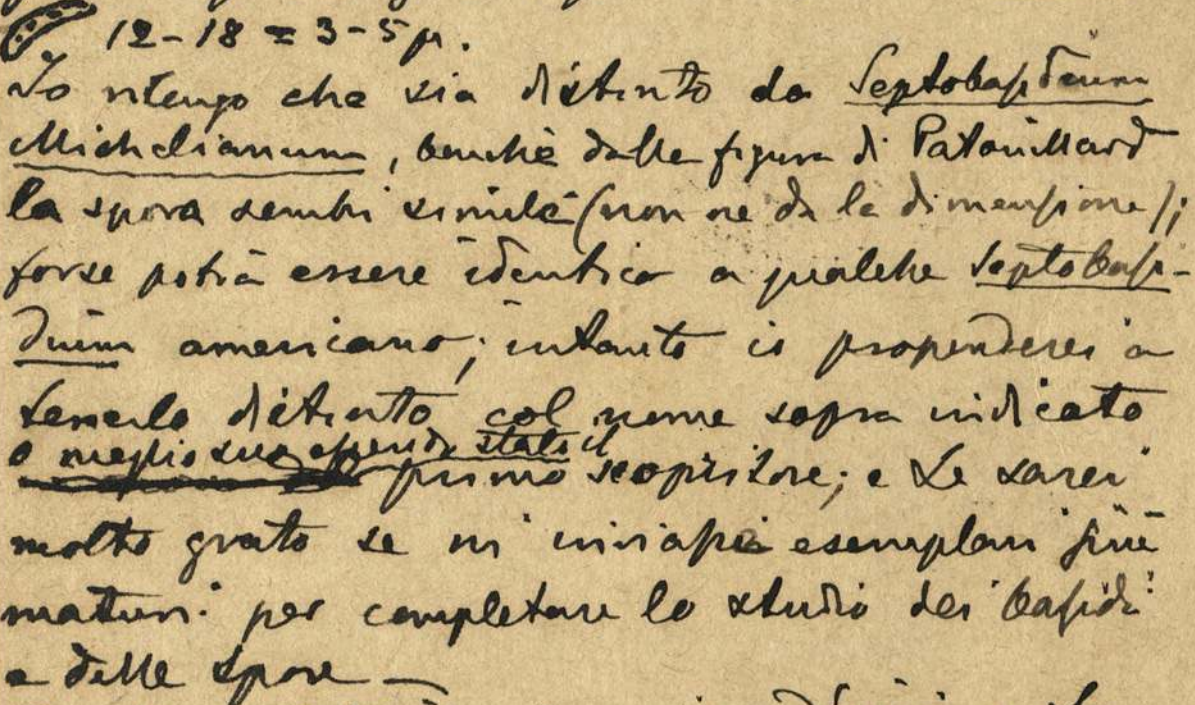 12-18 = 3-5 µ.
Io ritengo che sia distinto da Septobasidium
Michelianum, benchè dalla figura di Patouillard
la spora sembri simile (non ne da le dimensione);
forse potrà essere identico a qualche Septobasi-
dium americano; intanto io propenderei a
tenerlo distinto col nome sopra indicato
o meglio suo essendo stato il
primo scopritore; e Le sarei
molto grato se mi inviasse esemplari più
maturi per completare lo studio dei basidi
e delle spore —